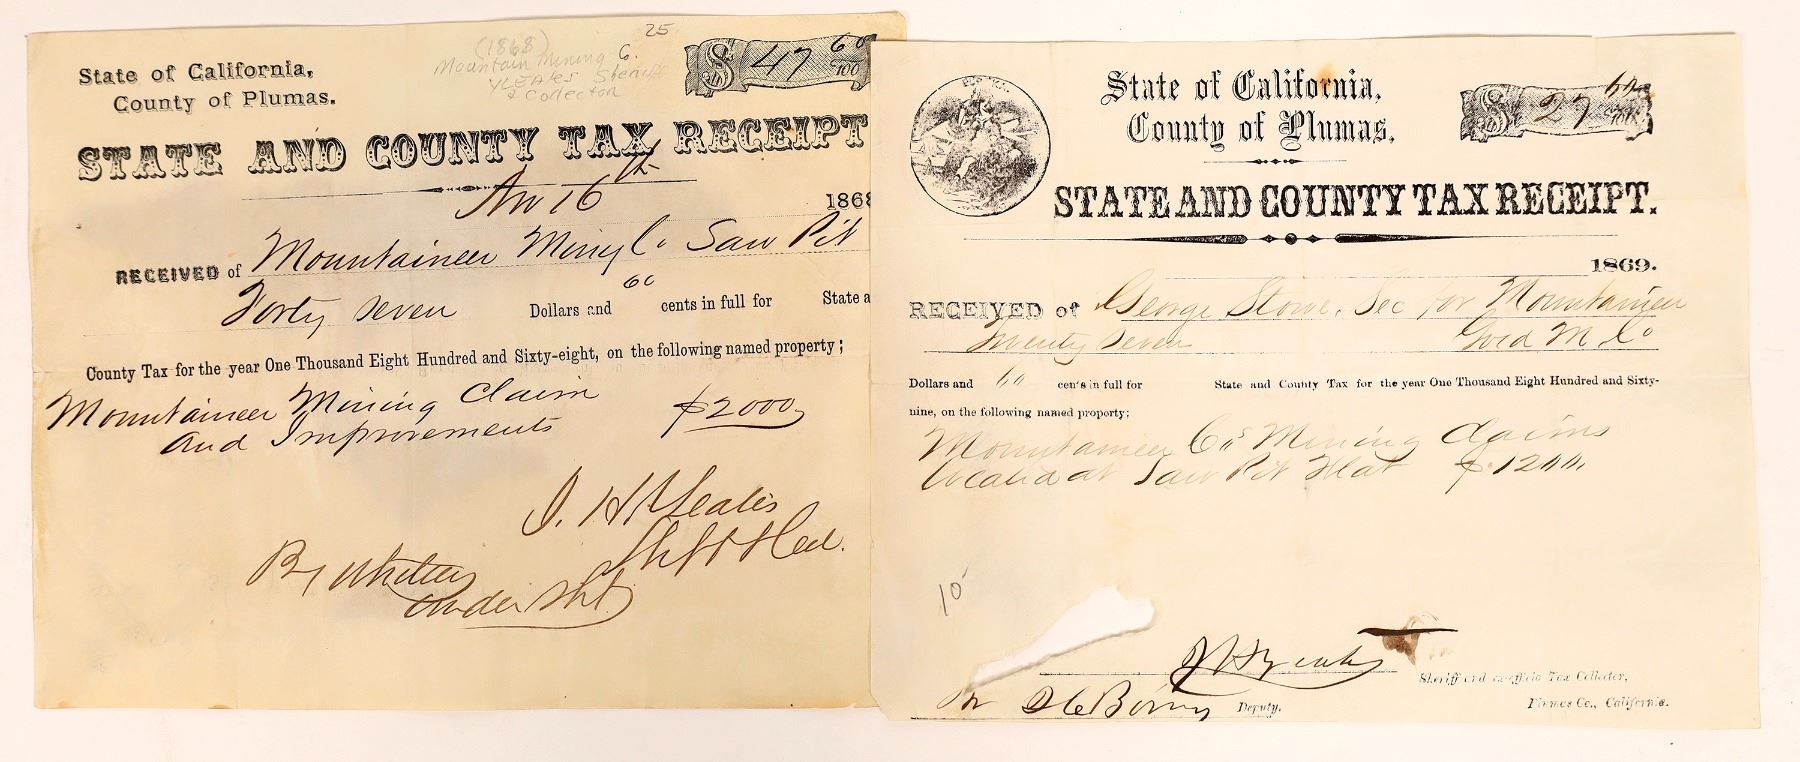 25
(1868)
Mountain Mining Co.
YLEATES Sheriff
& Collector
State of California,
County of Plumas.
$ 47 60/100
STATE AND COUNTY TAX RECEIPT
16th 1868
RECEIVED of Mountaineer Mining Co Saw Pit
Forty Seven Dollars and 60 cents in full for State a
County Tax for the year One Thousand Eight Hundred and Sixty-eight, on the following named property;
Mountaineer Mining Claim
and Improvements $2000
J. H. Yeates
Shff & Col.
By
under Shff
State of California,
County of Plumas.
$ 27 60/100
STATE AND COUNTY TAX RECEIPT.
1869.
RECEIVED of George Stowe, Sec for Mountaineer
Twenty Seven Gold M. Co
Dollars and 60 cents in full for State and County Tax for the year One Thousand Eight Hundred and Sixty-
nine, on the following named property;
Mountaineer Co's Mining Claims
located at Saw Pit Flat $1200.
10
J H Yeates
Sheriff and ex-officio Tax Collector,
Deputy.
Plumas Co., California.